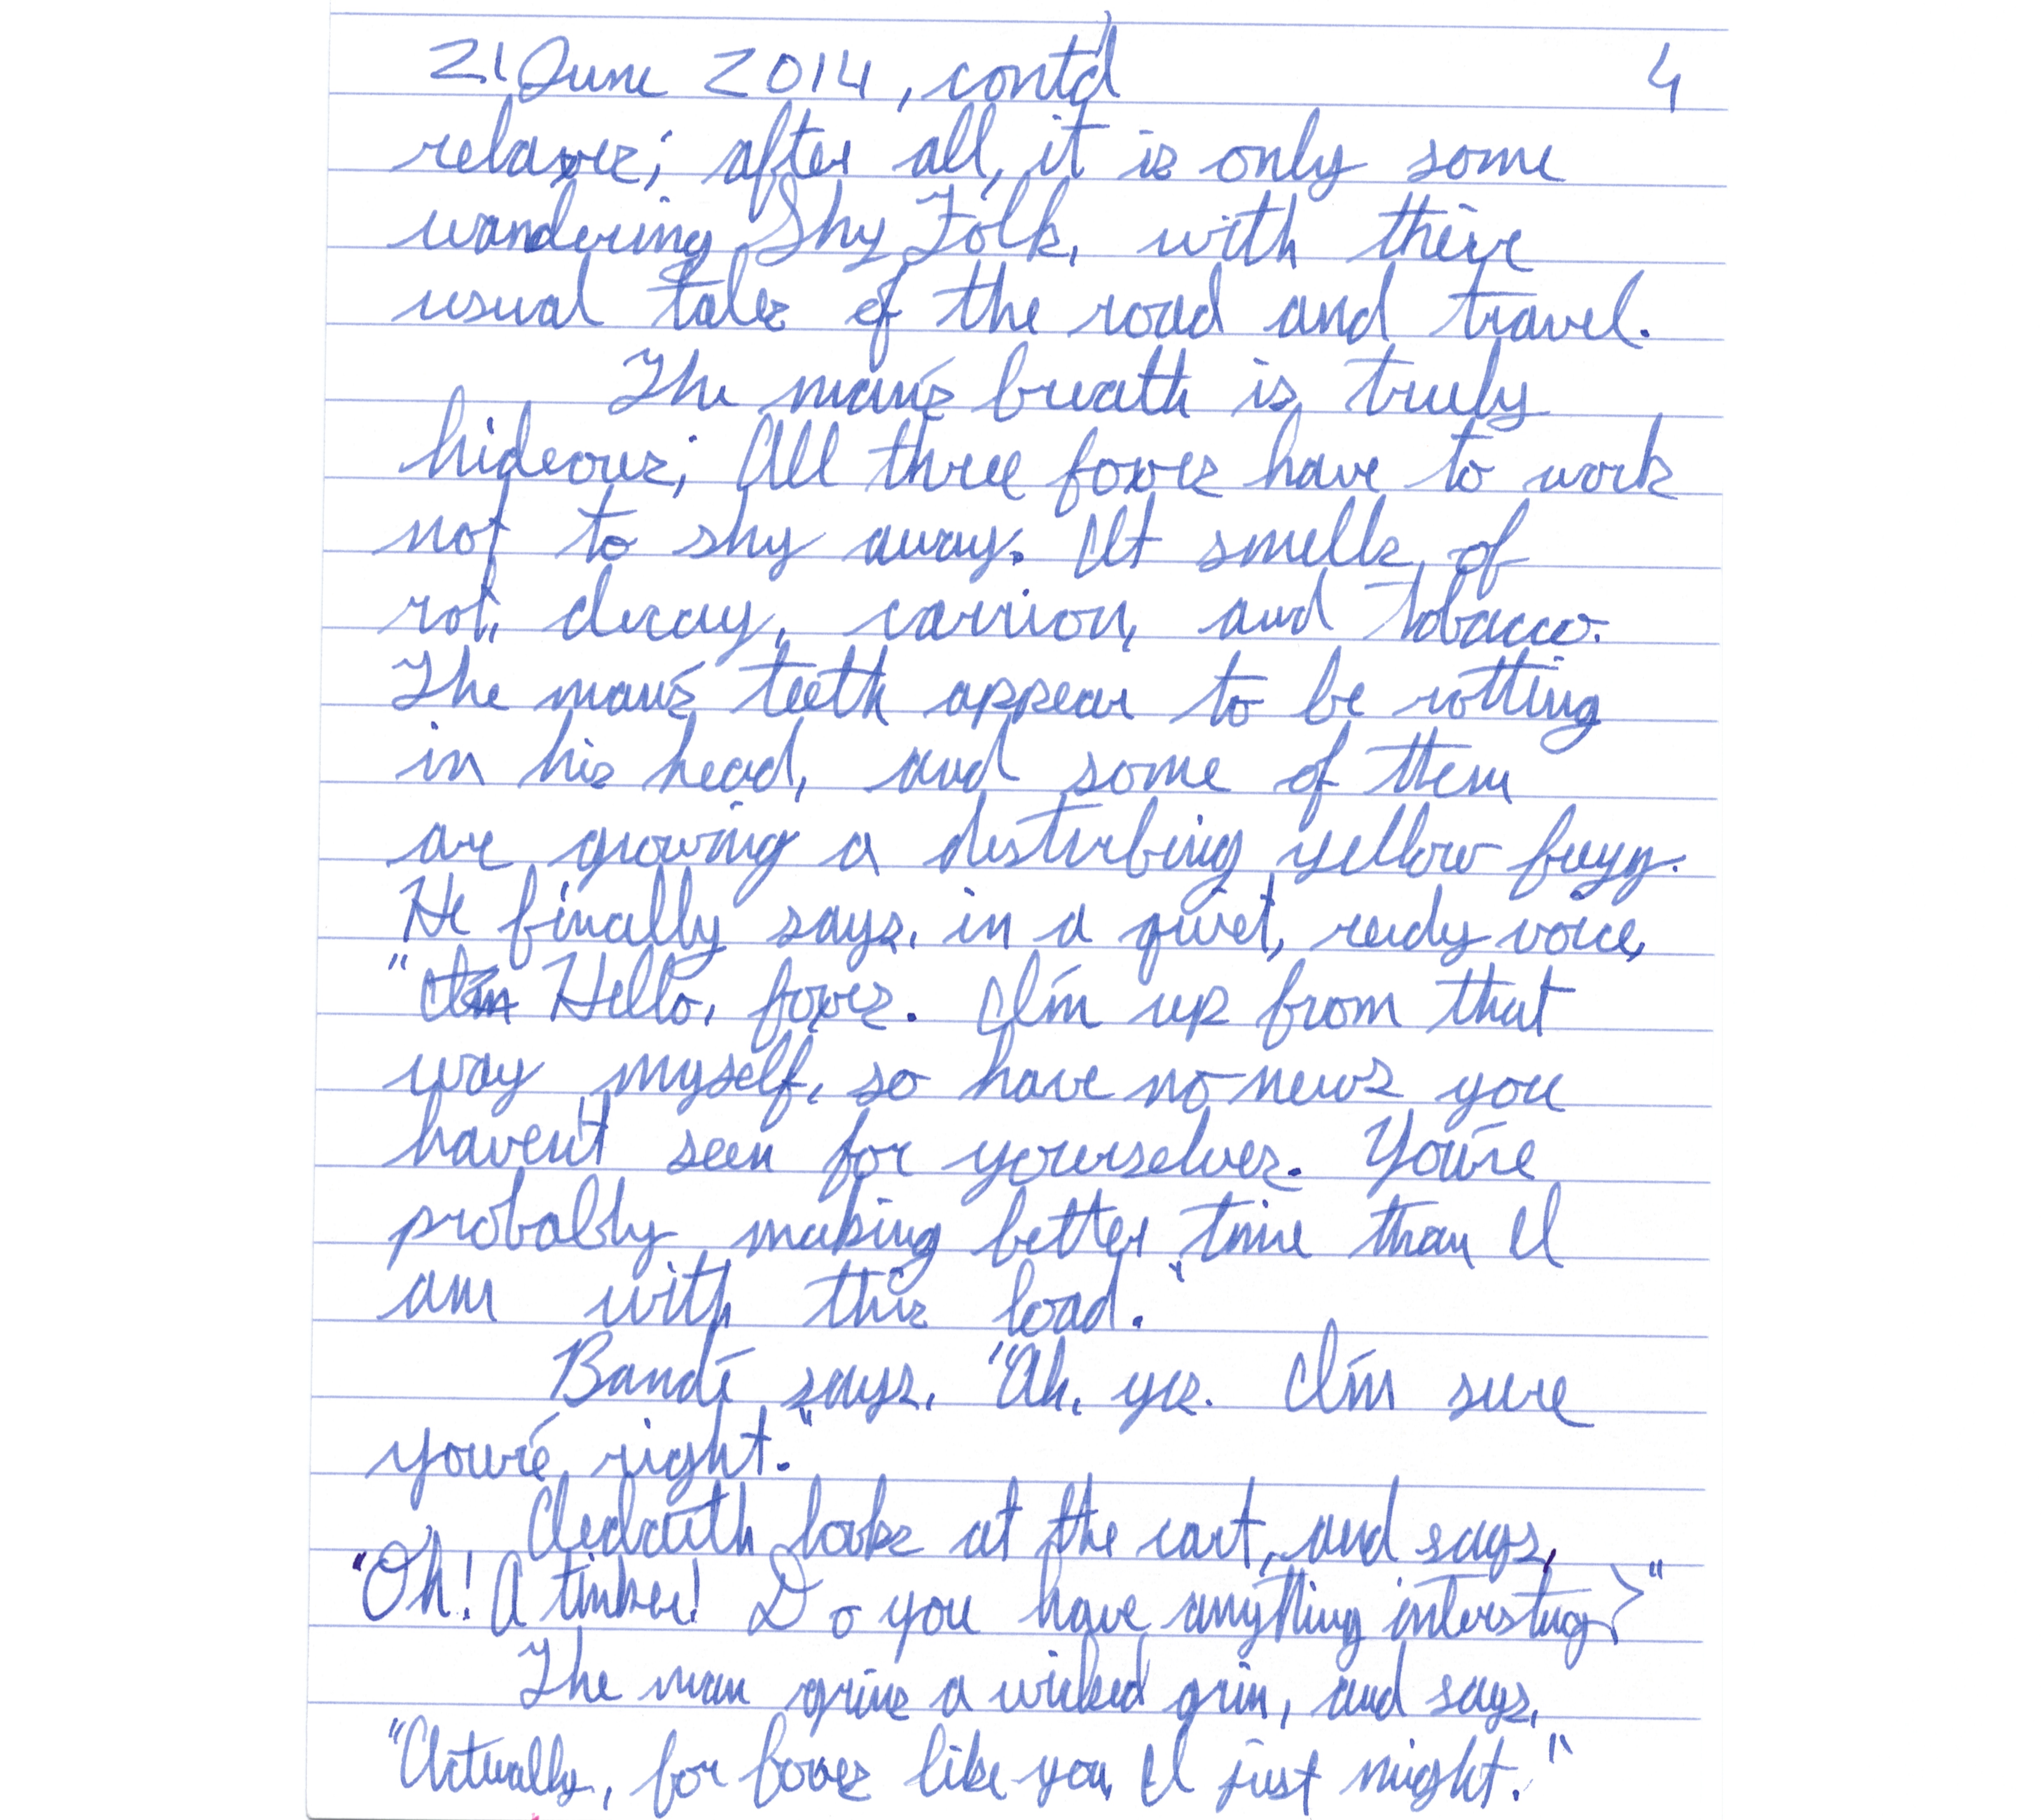 21 June 2014, cont'd 4
relaxes; after all, it is only some
wandering Shy Folk, with their
usual tales of the road and travel.
The man's breath is truly
hideous; All three foxes have to work
not to shy away. It smells of
rot, decay, carrion, and Tobacco.
The man's teeth appear to be rotting
in his head, and some of them
are growing a disturbing yellow fuzz.
He finally says, in a quiet, reedy voice,
"I'm Hello, foxes. I'm up from that
way myself, so have no news you
haven't seen for yourselves. You're
probably making better time than I
am with this load."
Bandí says, "Ah, yes. I'm sure
you're right."
looks at the cart, and says,
"Oh! A tinker! Do you have anything interesting?"
The man grins a wicked grin, and says,
"Actually, for foxes like you, I just might."